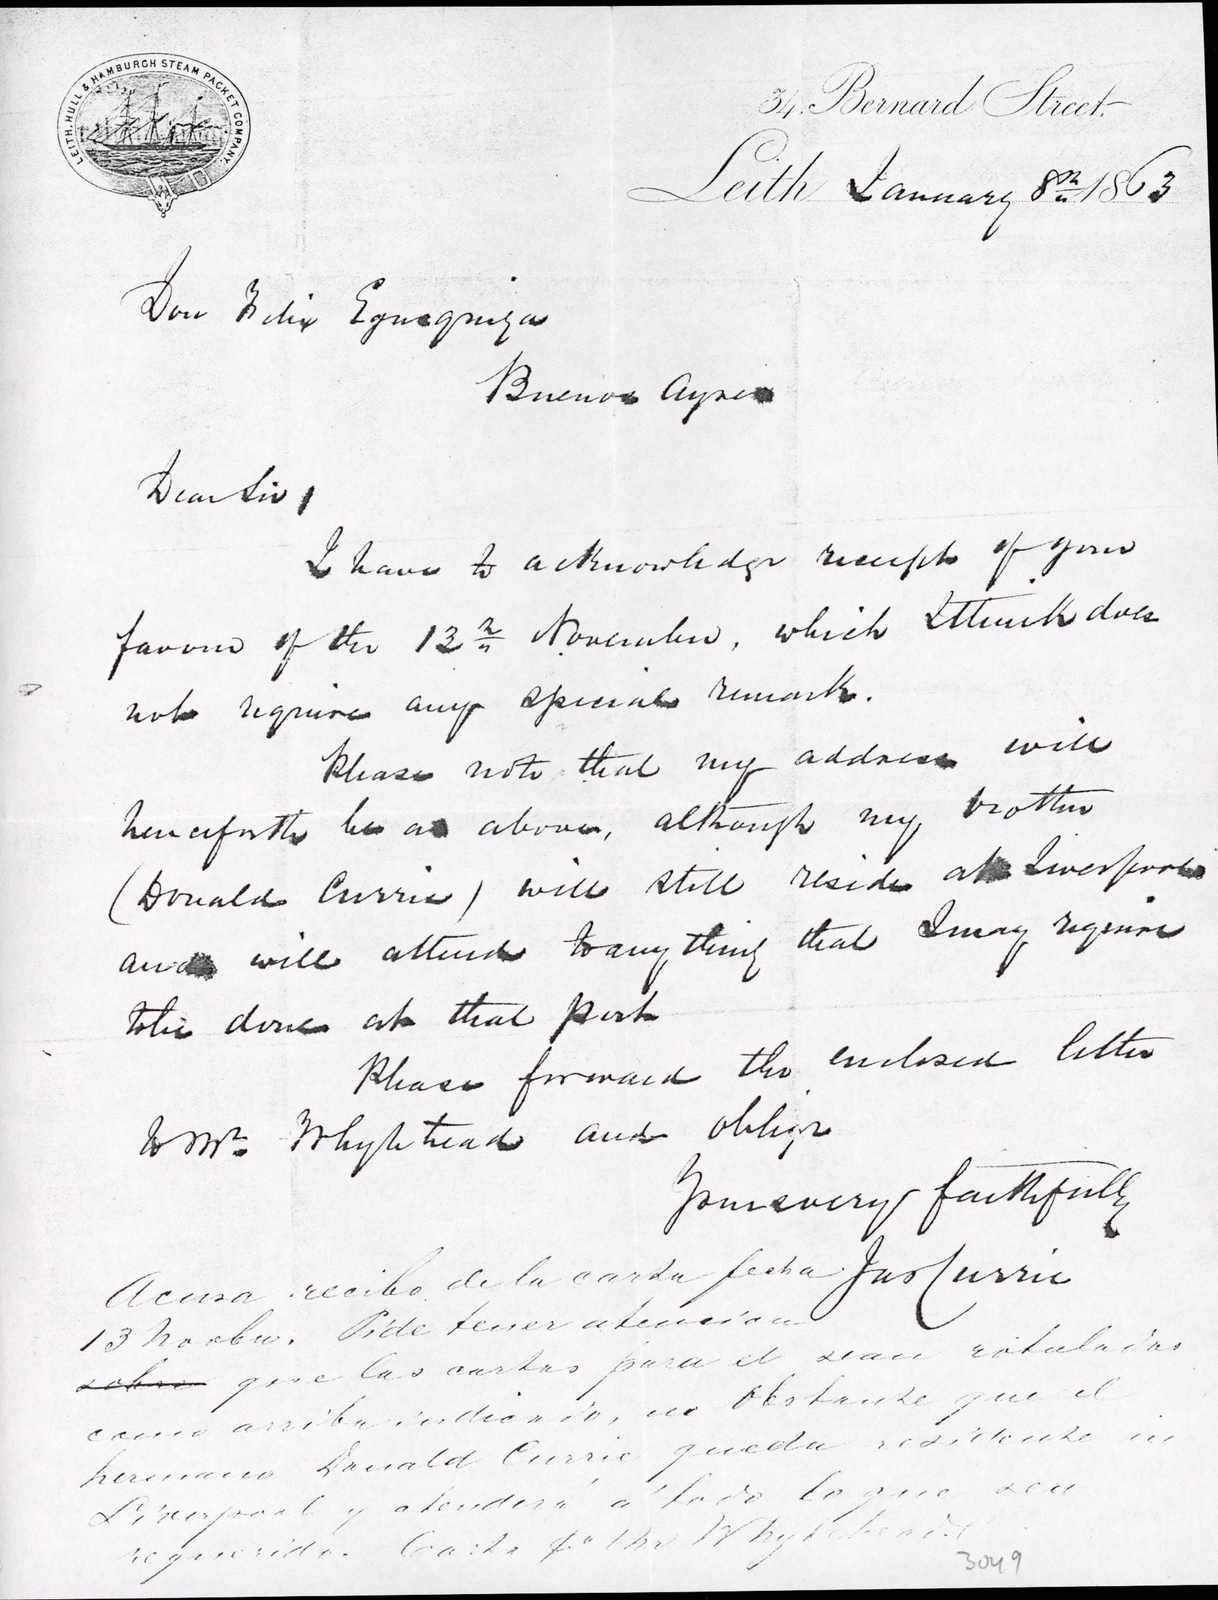 LEITH, HULL & HAMBURGH STEAM PACKET COMPANY.
34. Bernard Street.
Leith January 8th 1863
Don Felix Egusquiza
Buenos Ayres
Dear Sir,
I have to acknowledge receipt of your
favour of the 13th November, which I think does
not require any special remark.
Please note that my address will
henceforth be as above, although my brother
(Donald Currie) will still reside at Liverpool
and will attend to anything that I may require
to be done at that port
Please forward the enclosed letter
to Mr. Whytehead and oblige
Yours very faithfully
Jas Currie
Acusa recibo de la carta fecha
13 Novbre. Pide tener atencion
sobre que las cartas para el sean rotuladas
como arriba indicado, no obstante que el
hermano Donald Currie queda residente in
Liverpool y atenderá á todo lo que sea
requerido. Carta Whytehead
3049